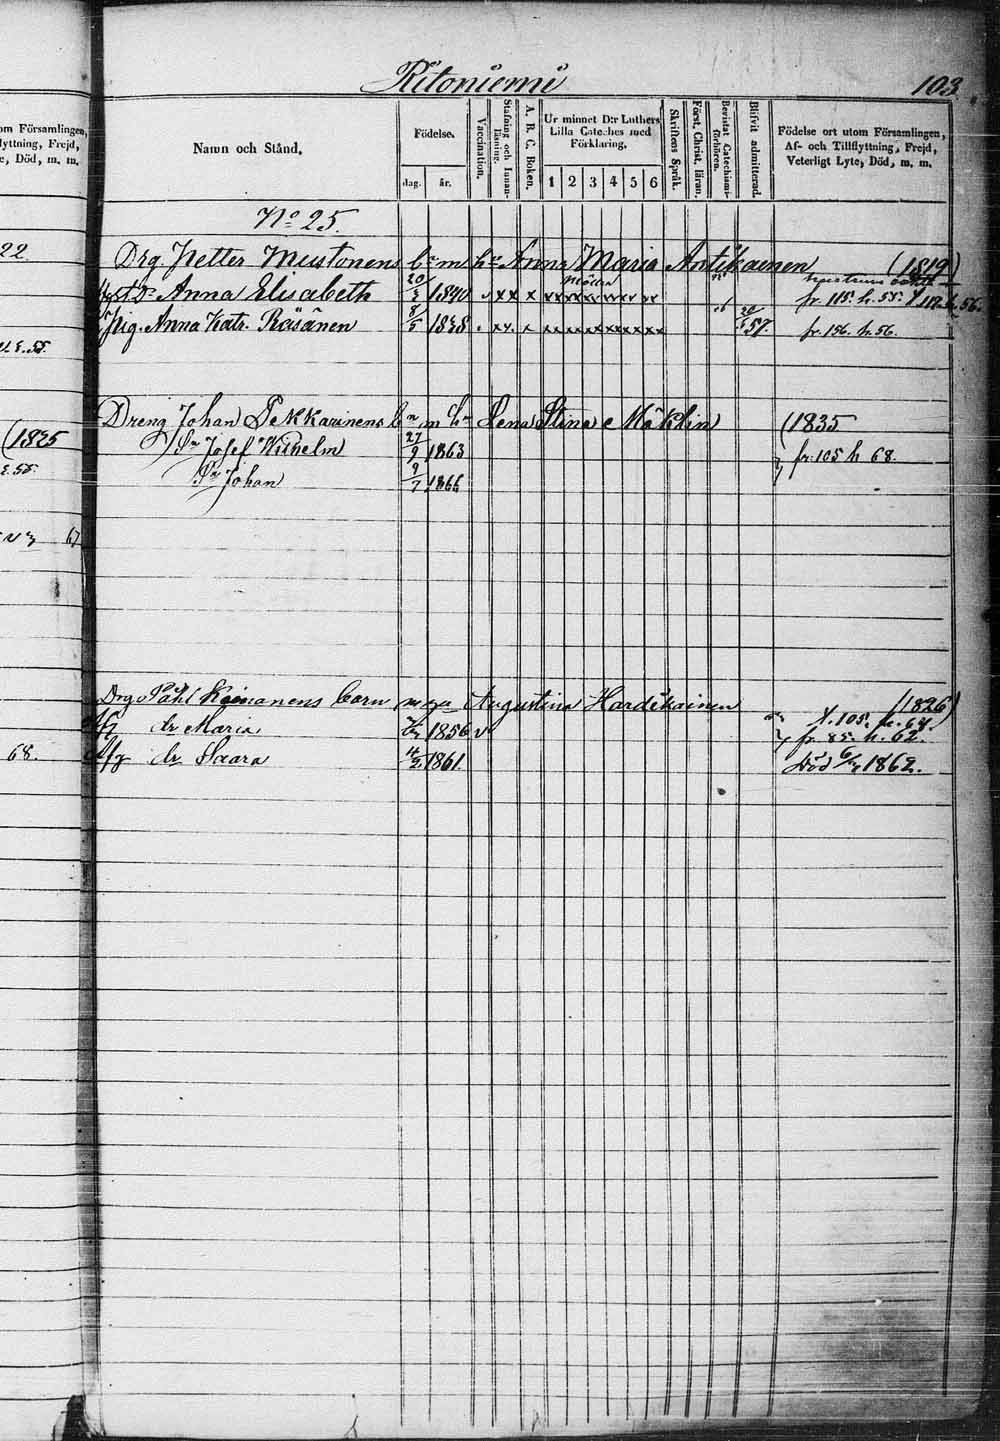 Ritoniemi
103.
om Församlingen,
lyttning, Frejd,
e, Död, m. m.
Namn och Stånd.
Födelse.
dag. år.
Vaccination.
Stafning och Innanläsning.
A. B. C. Boken.
Ur minnet D:r Luthers
Lilla Cateches med
Förklaring.
1 2 3 4 5 6
Skriftens Språk.
Först. Christ. läran.
Bevistat Catechismiförhören.
Blifvit admitterad.
Födelse ort utom Församlingen,
Af- och Tillflyttning, Frejd,
Veterligt Lyte, Död, m. m.
No 25.
22.
Drg Petter Mustonens b:n m h:u Anna Maria Antikainen (1819)
D:r Anna Elisabeth 20/3 1840 x x x x x x x x x x fr. 115. h. 55.
Pig. Anna Katr. Räsänen 8/5 1838 x x x x x x x x x x 57. fr. 156. h. 56.
Dreng Johan Pekkarinens b:n m h:u Lena Stina Mäklin (1835
S:n Josef Wilhelm 27/9 1863 fr. 105 h 68.
S:n Johan 9/7 1866
(1825
67
Drg Påhl Keinanens barn m Augustina Hardikainen (1826)
f. 105. h. 64.
Afg dr Maria 1856 v fr. 85. h. 62.
68. Afg dr Saara 1861. Död 1862.